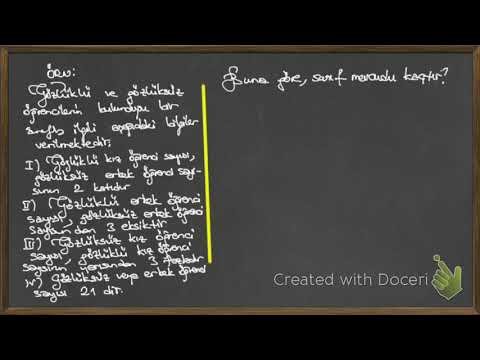 ÖRN:
Gözlüklü ve gözlüksüz
öğrencilerin bulunduğu bir
sınıfla ilgili aşağıdaki bilgiler
verilmektedir.
I) Gözlüklü kız öğrenci sayısı,
gözlüksüz erkek öğrenci sayı-
sının 2 katıdır
II) Gözlüklü erkek öğrenci
sayısı, gözlüksüz erkek öğrenci
sayısından 3 eksiktir
III) Gözlüksüz kız öğrenci
sayısı, gözlüklü kız öğrenci
sayısının yarısından 3 fazladır
IV) Gözlüksüz veya erkek öğrenci
sayısı 21 dir.
Buna göre, sınıf mevcudu kaçtır?
Created with Doceri